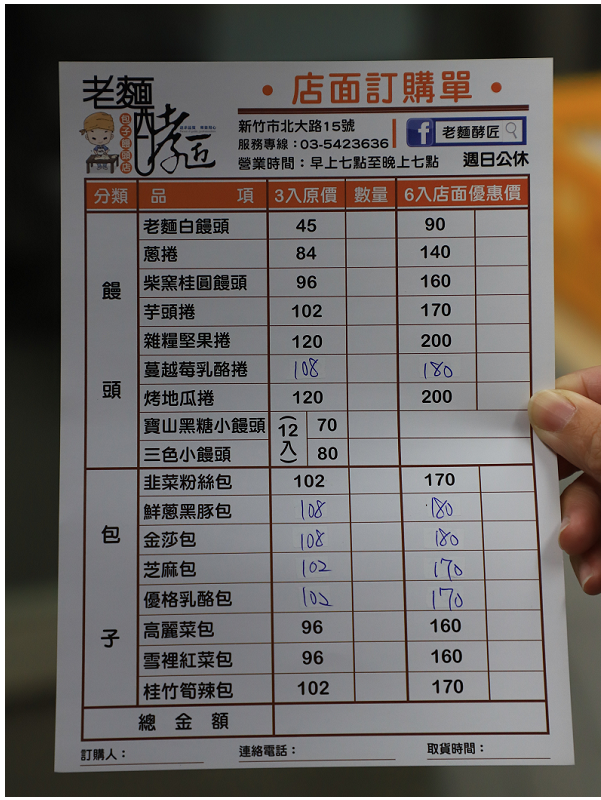 老麵
酵匠
包子饅頭店
• 店面訂購單 •
新竹市北大路15號
服務專線：03-5423636
營業時間：早上七點至晚上七點 週日公休
f 老麵酵匠
分類 品項 3入原價 數量 6入店面優惠價
饅頭
老麵白饅頭 45 90
蔥捲 84 140
柴窯桂圓饅頭 96 160
芋頭捲 102 170
雜糧堅果捲 120 200
蔓越莓乳酪捲 108 180
烤地瓜捲 120 200
寶山黑糖小饅頭 (12入) 70
三色小饅頭 80
包子
韭菜粉絲包 102 170
鮮蔥黑豚包 108 180
金莎包 108 180
芝麻包 102 170
優格乳酪包 102 170
高麗菜包 96 160
雪裡紅菜包 96 160
桂竹筍辣包 102 170
總金額
訂購人： 連絡電話： 取貨時間：